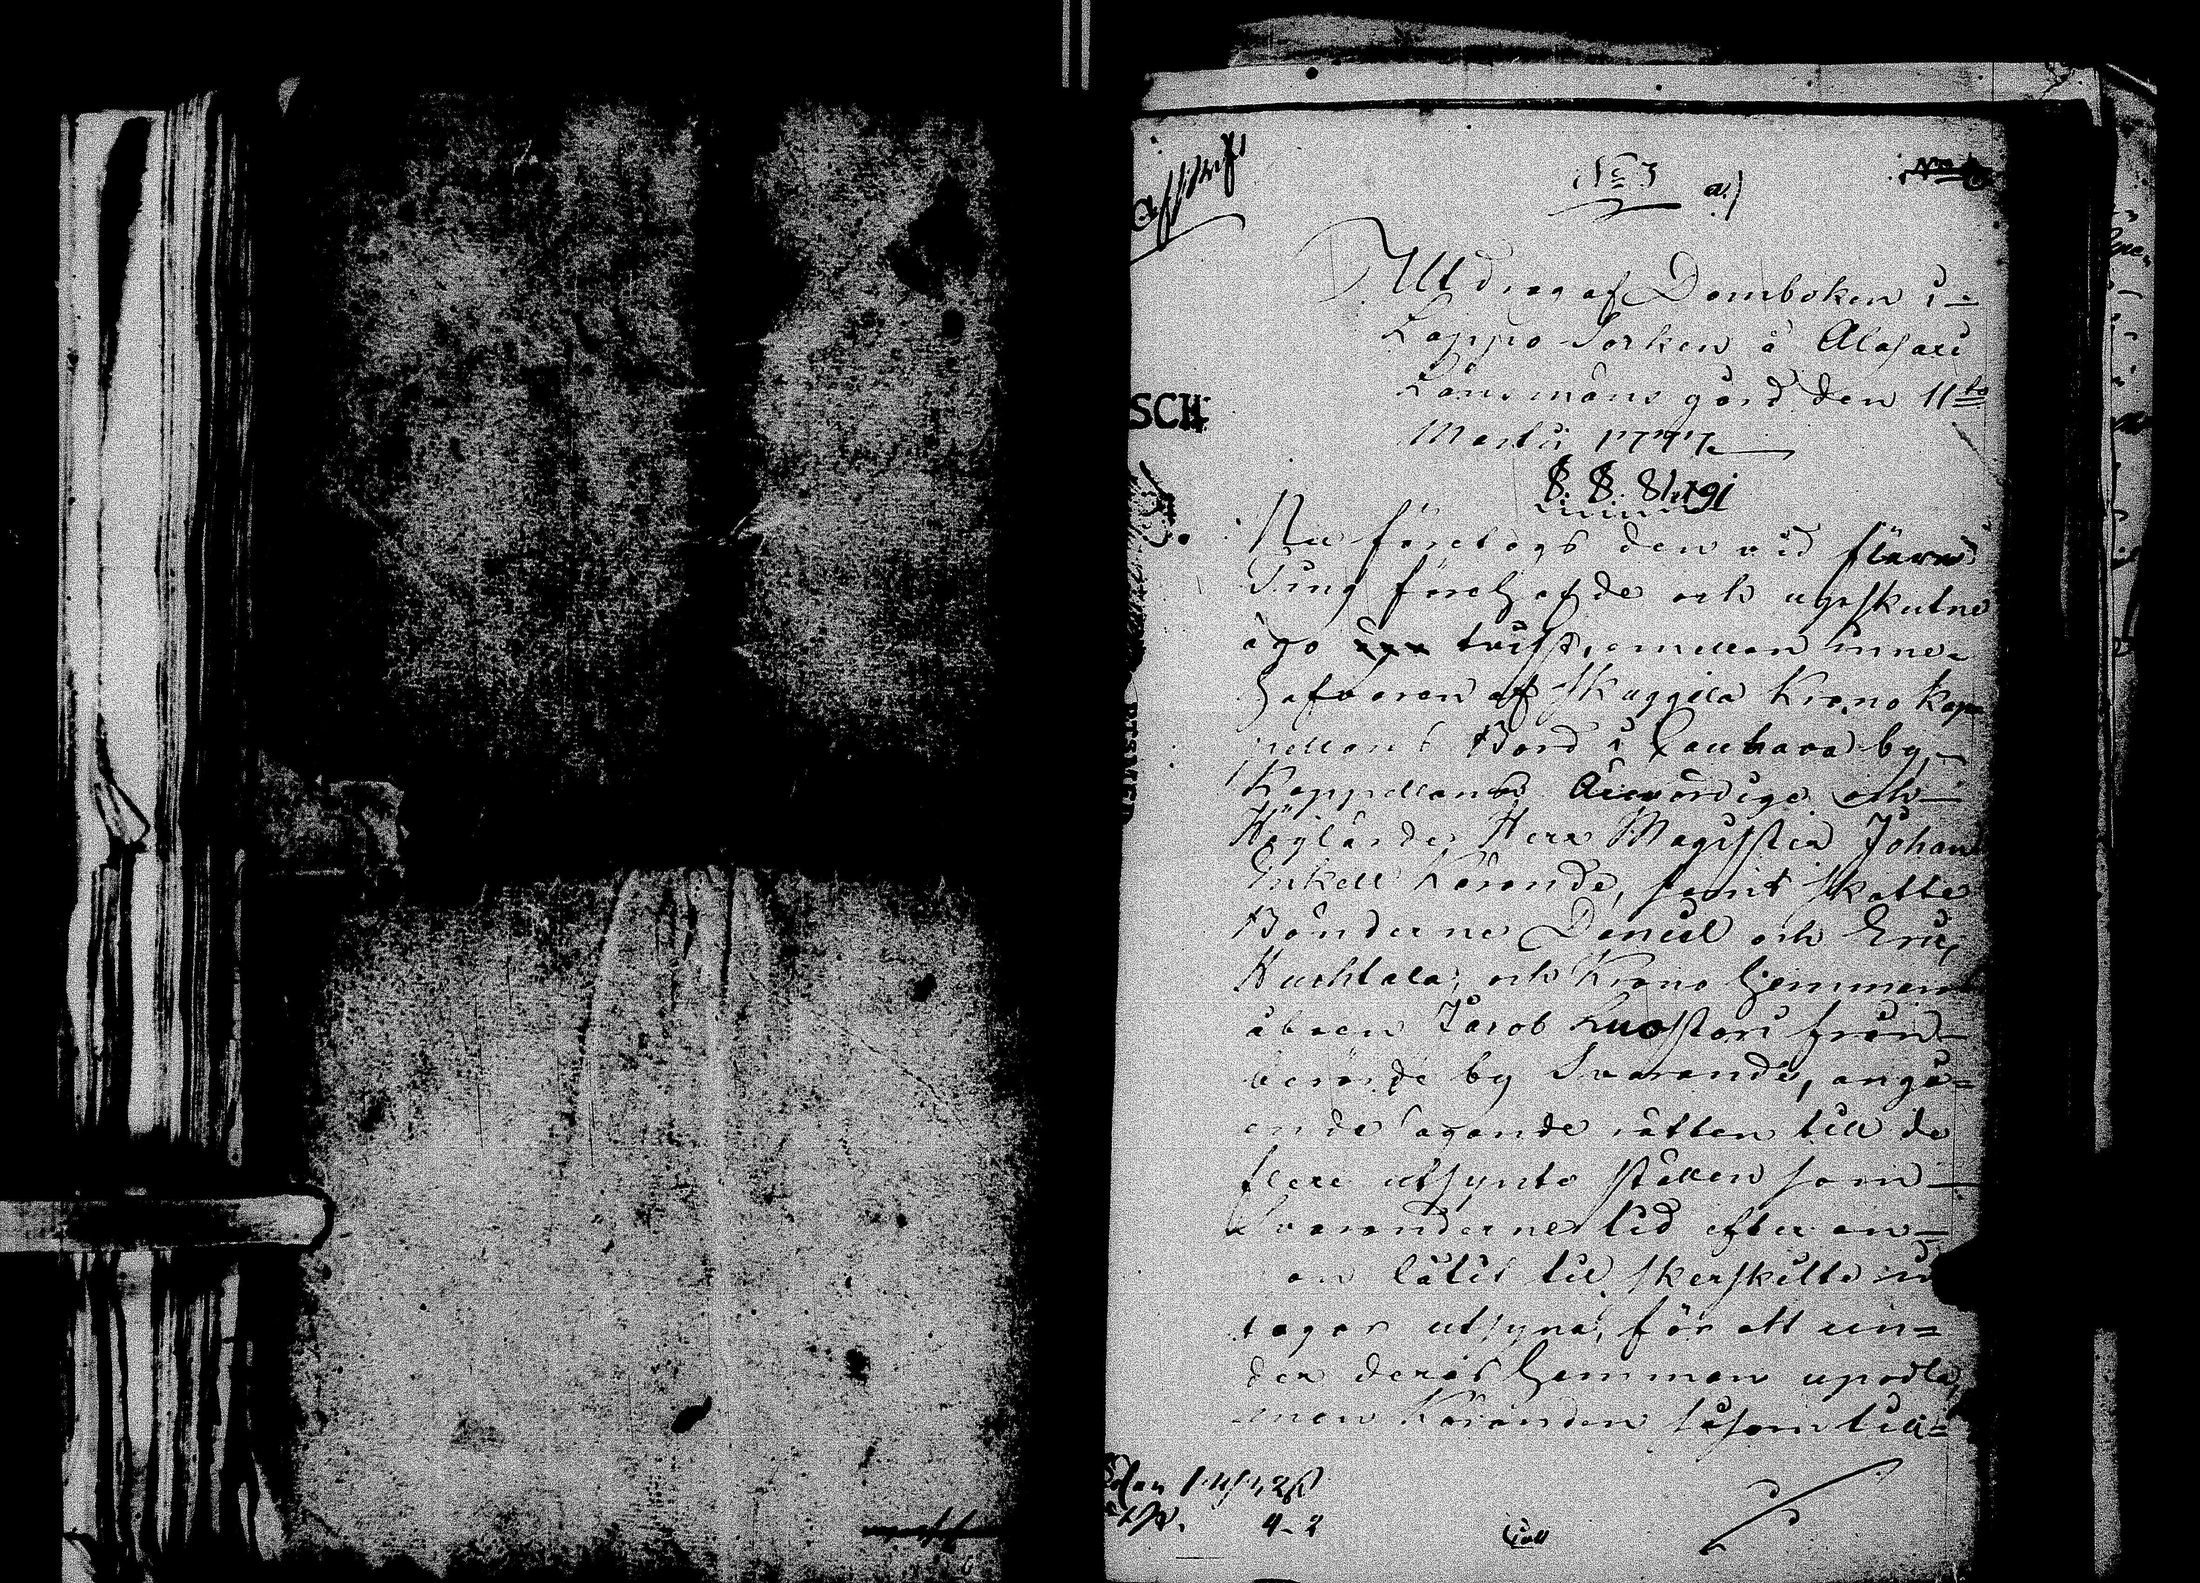 Afskrift
No 3 a)
Utdrag af Domboken i
Lappo Sorken å Alasari
Länsmans gård den 11te
Martii 1777
S. S. 81:191
Nu företogs den vid flera
Ting förehafde och upskutne
ägo tvist, emellan inne-
hafvaren af Skuggila Krono kap-
pellans Bord i Kauhava by,
Kappellanen Ärevördige och
Höglärde Herr Magister Johan
Enkell Kärande, samt Skatte
Bönderne Daniel och Eric
Huchtala, och Krono hemmans
åboen Jacob Luostari från
berörde by Svarande, angå-
ende ägande rätten till de
flere utsynte ställen som
Svaranderne tid efter an-
nan låtit till skerskilte in
tagor utsyna, för att un-
der deras hemman upodla,
men Käranden såsom till-
4-2